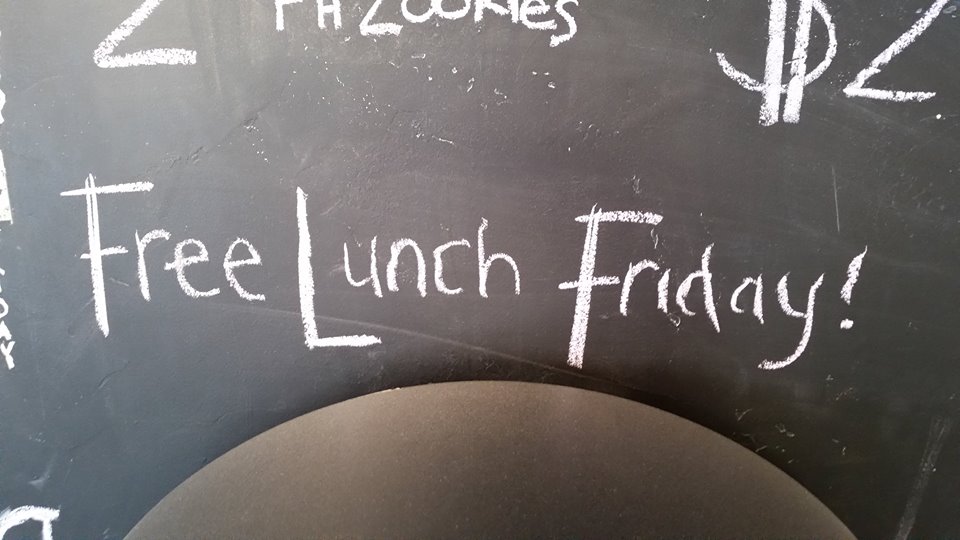 2 FH COOKIES $2
Free Lunch Friday!
DAY